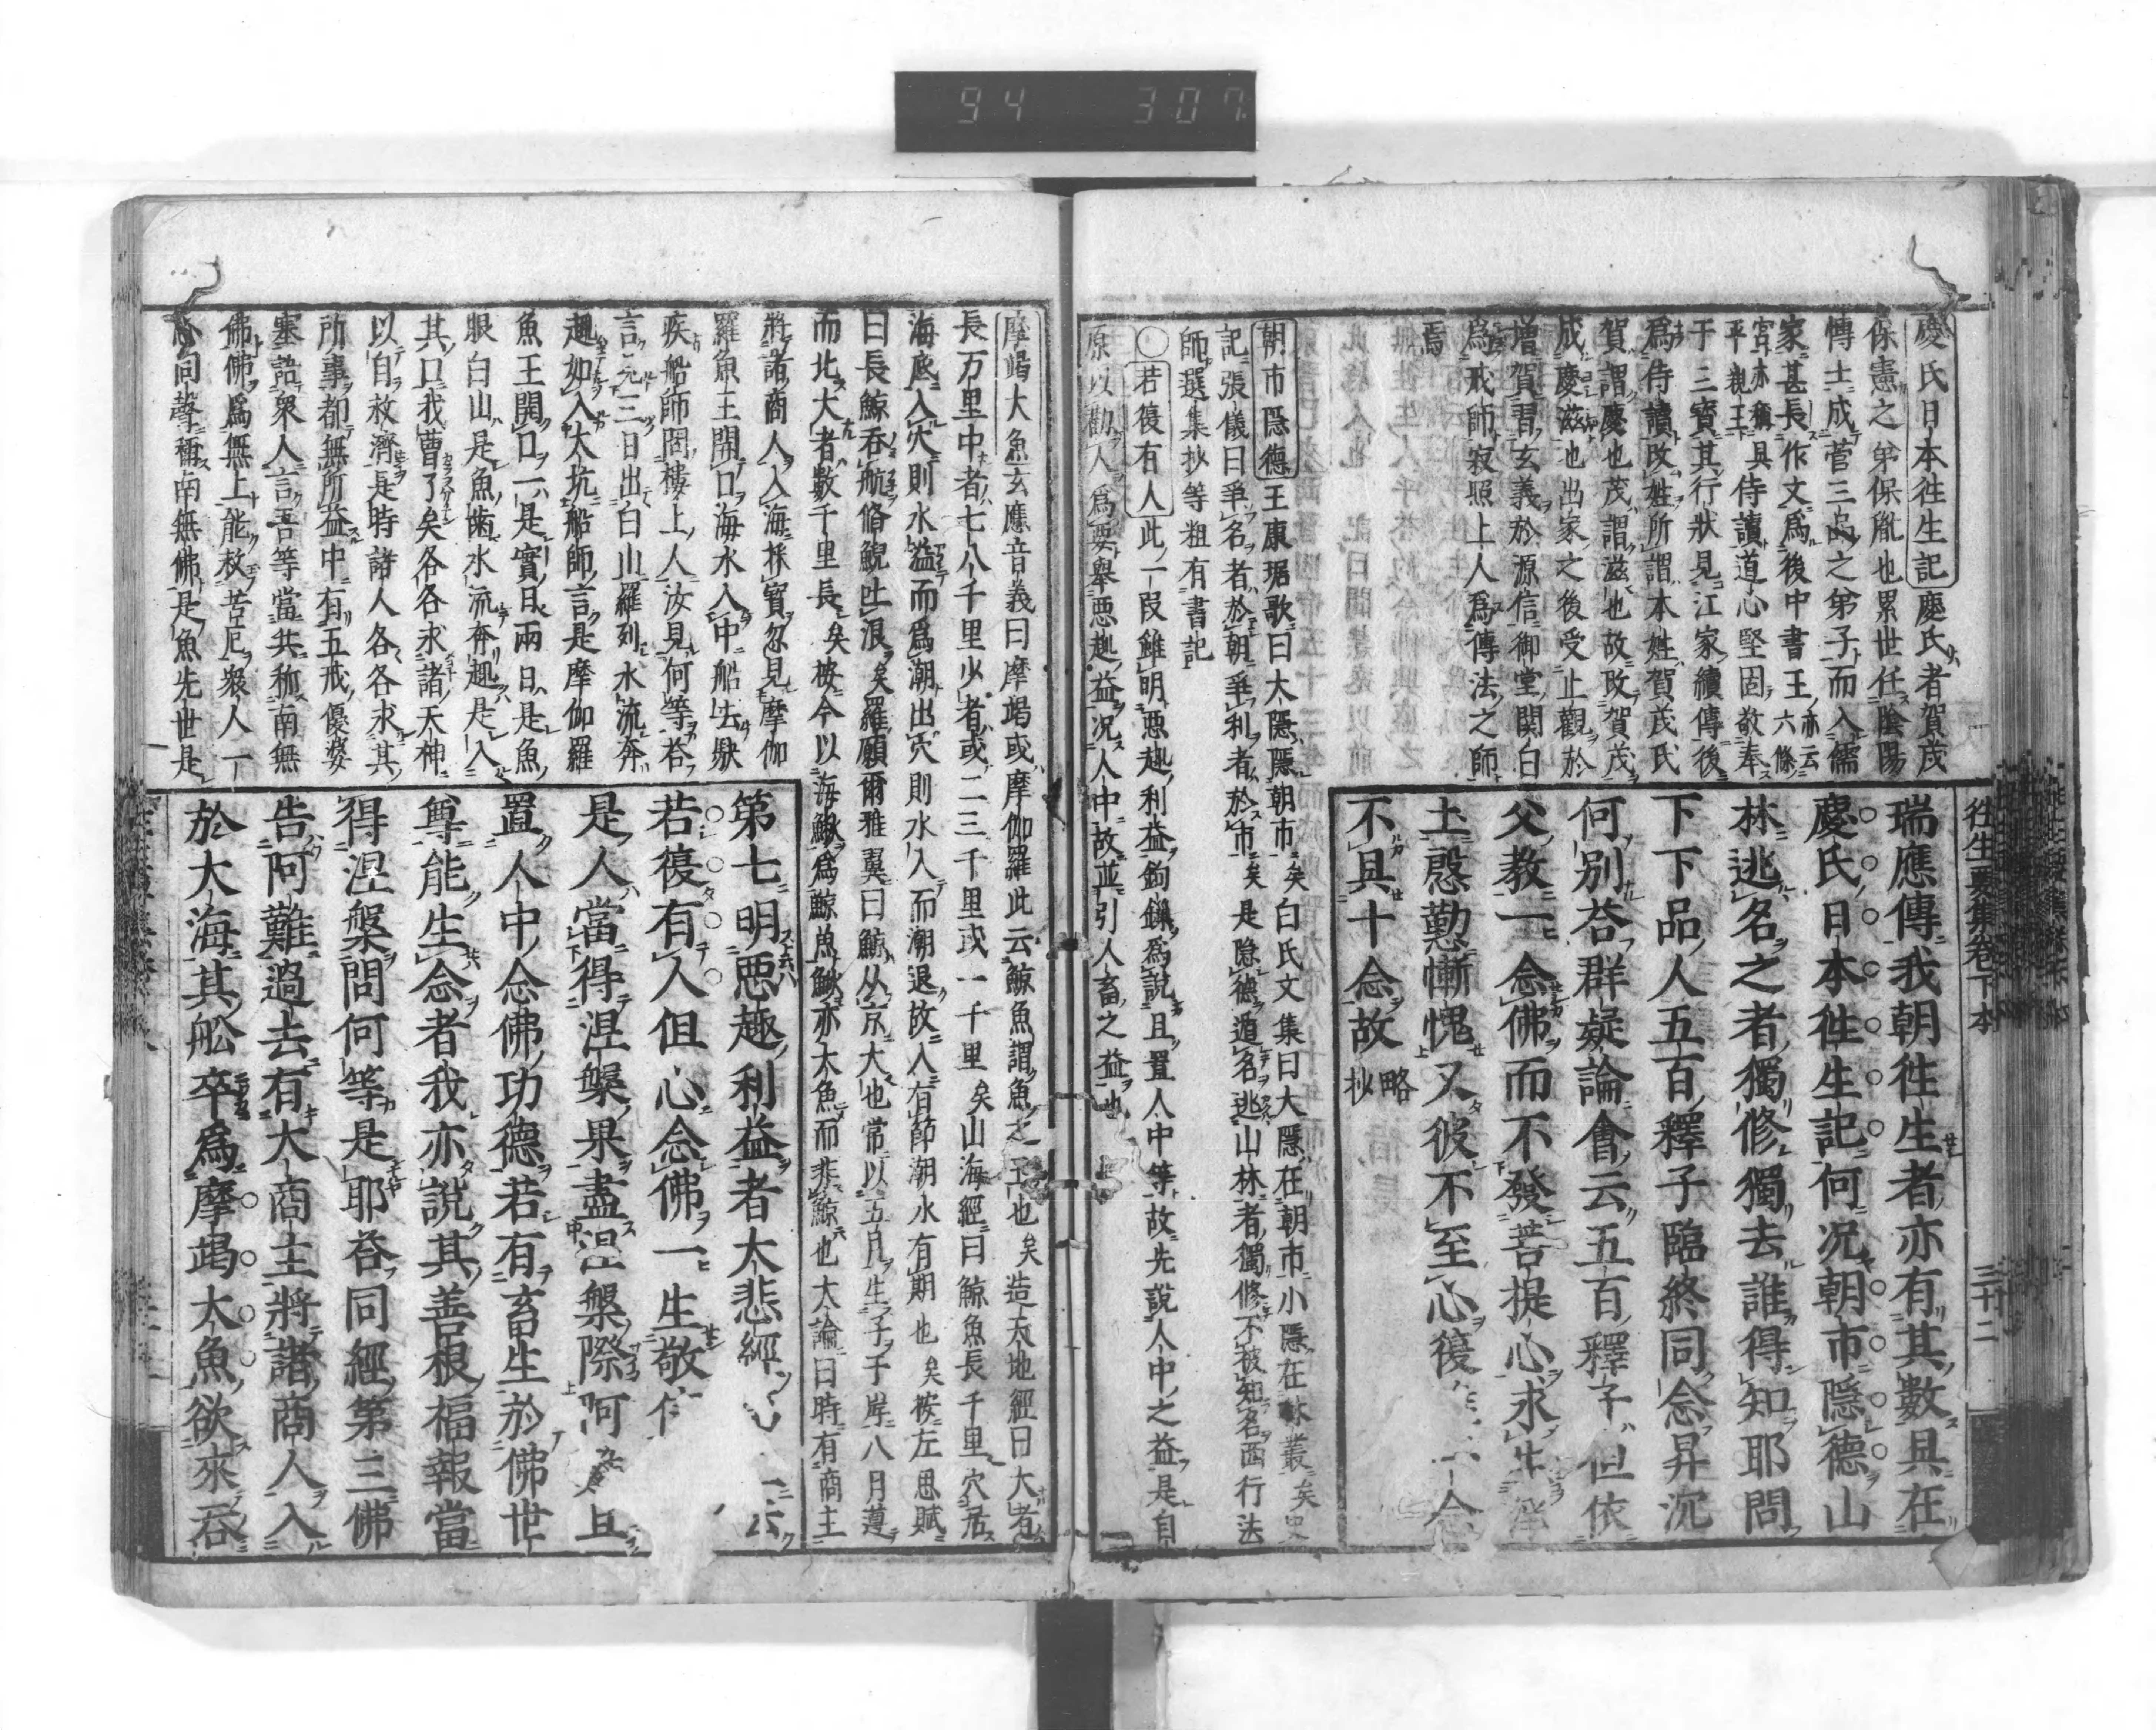 94 307
往生要集卷下本 三十二
慶氏日本往生記慶氏者賀茂
保憲之弟保胤也累世任陰陽
傳士成菅三品之弟子而入儒
家甚長作文爲後中書王亦云六條
宮亦稱具平親王侍讀道心堅固敬奉
于三寶其行狀見江家續傳後
爲侍讀改姓所謂本姓賀茂氏
賀謂慶也茂謂滋也故改賀茂
成慶滋也出家之後受止觀於
增賀習玄義於源信御堂関白
爲戒師寂照上人爲傳法之師
焉
瑞應傳我朝徃生者亦有其數具在
慶氏日本徃生記何況朝市隱德山
林逃名之者獨修獨去誰得知耶問
下下品人五百釋子臨終同念昇沉
何別荅群疑論會云五百釋子但依
父教一念佛而不發菩提心求生淨
土慇懃慚愧又彼不至心復
不具十念故略抄
朝市隱德王康琚歌曰大隱隱朝市矣白氏文集曰大隱在朝市小隱在林叢矣史
記張儀曰爭名者於朝爭利者於市矣是隱德遁名逃山林者獨修不被知名西行法
師選集抄等粗有書記
○若復有人此一段雖明惡趣利益鉤鎖爲說且置人中等故先說人中之益是自
原以勸人爲要舉惡趣益況人中故並引人畜之益也
摩竭大魚玄應音義曰摩竭或摩伽羅此云鯨魚謂魚之王也矣造天地經曰大者
長万里中者七八千里少者或二三千里或一千里矣山海經曰鯨魚長千里穴居
海底入穴則水溢而爲潮出穴則水入而潮退故入有節潮水有期也矣按左思賦
曰長鯨吞航脩鯢吐浪矣羅願爾雅翼曰鯨从京大也常以五月生子于岸八月導
而北大者數千里長矣按今以海鰌爲鯨魚鰌亦大魚而非鯨也大論曰時有商主
將諸商人入海採寶忽見摩伽
羅魚王開口海水入中船去駛
疾船師問樓上人汝見何等荅
言見三日出白山羅列水流奔
趣如入大坑船師言是摩伽羅
魚王開口一是實日兩日是魚
眼白山是魚齒水流奔趣是入
其口我曹了矣各各求諸天神
以自救濟是時諸人各各求其
所事都無所益中有五戒優婆
塞語衆人言吾等當共稱南無
佛佛爲無上能救苦厄衆人一
心同聲稱南無佛是魚先世是
第七明惡趣利益者大悲經
若復有人但心念佛一生敬
是人當得涅槃果盡涅槃際阿 且
置人中念佛功德若有畜生於佛世
尊能生念者我亦說其善根福報當
得涅槃問何等是耶荅同經第三佛
告阿難過去有大商主將諸商人入
於大海其舩卒爲摩竭大魚欲來吞